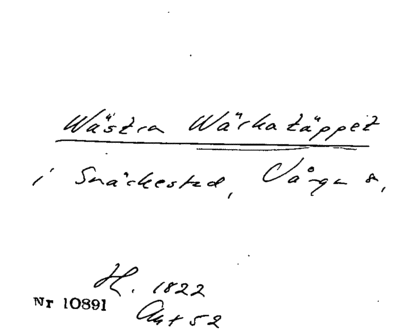 Wästra Wärkatäppet
i Snäckestad, Vånga s,
H. 1822
Nr 10891
Akt 52